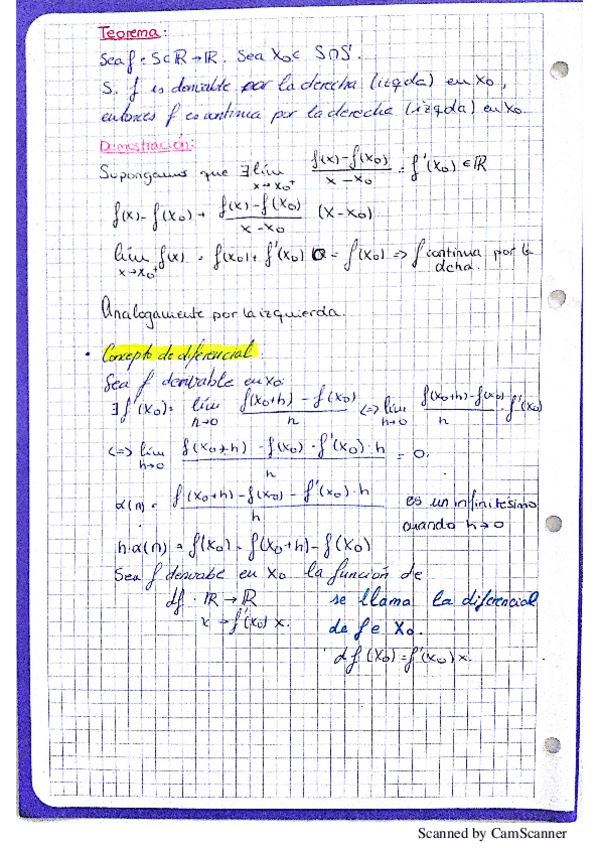 Teorema:
Sea f: S⊂ℝ→ℝ. Sea x₀∈ S∩S'.
S. f es derivable por la derecha (izqda) en x₀,
entonces f es continua por la derecha (izqda) en x₀.
Demostración:
Supongamos que ∃ lím x→x₀⁺ (f(x)-f(x₀))/(x-x₀) = f'(x₀) ∈ ℝ
f(x) = f(x₀) + (f(x)-f(x₀))/(x-x₀) (x-x₀)
lím x→x₀⁺ f(x) = f(x₀) + f'(x₀) 0 = f(x₀) => f continua por la dcha.
Analogamente por la izquierda.
• Concepto de diferencial.
Sea f derivable en x₀:
∃ f'(x₀) = lím h→0 (f(x₀+h) - f(x₀))/h <=> lím h→0 (f(x₀+h)-f(x₀))/h - f'(x₀)
<=> lím h→0 (f(x₀+h) - f(x₀) - f'(x₀)·h)/h = 0.
α(h) = (f(x₀+h) - f(x₀) - f'(x₀)·h)/h es un infinitésimo
cuando h→0
h·α(h) = f(x₀) - f(x₀+h) - f(x₀)
Sea f derivabe en x₀ la función de
df: ℝ→ℝ se llama la diferencial
x → f'(x₀) x. de f e x₀.
df(x₀) = f'(x₀) x.
Scanned by CamScanner